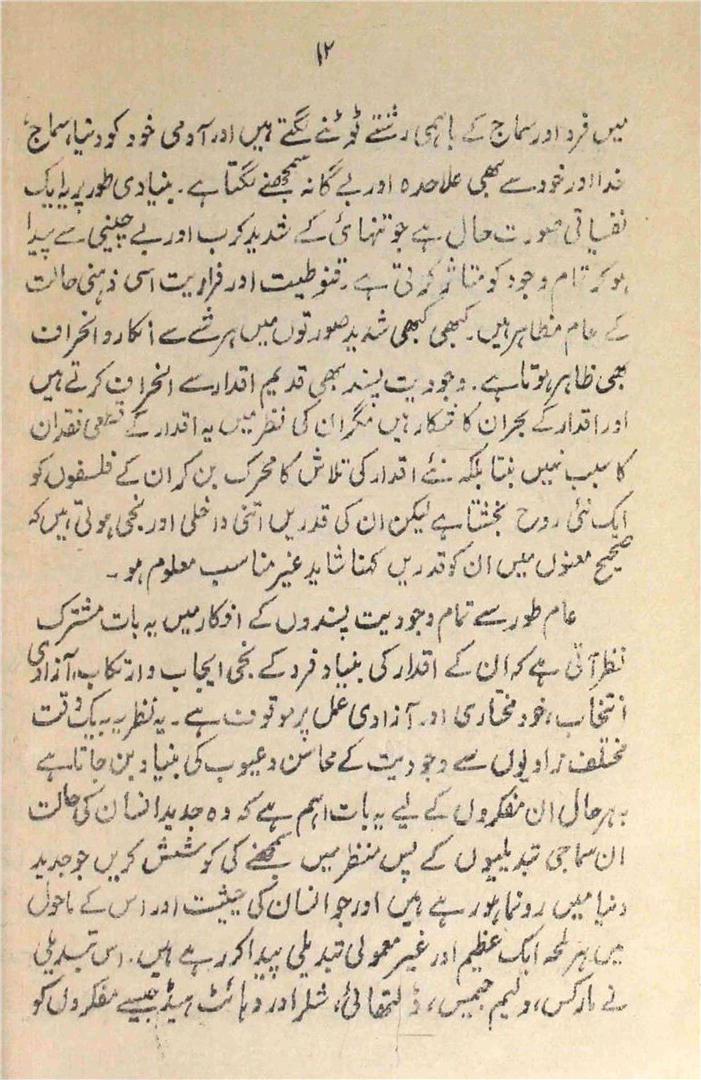 ۱۲
میں فرد اور سماج کے باہمی رشتے ٹوٹنے لگتے ہیں اور آدمی خود کو دنیا، سماج،
خدا اور خود سے بھی علاحدہ اور بے گانہ سمجھنے لگتا ہے۔ بنیادی طور پر یہ ایک
نفسیاتی صورت حال ہے جو تنہائی کے شدید کرب اور بے چینی سے پیدا
ہو کر تمام وجود کو متاثر کرتی ہے۔ قنوطیت اور فراریت اسی ذہنی حالت
کے عام مظاہر ہیں۔ کبھی کبھی شدید صورتوں میں ہر شے سے انکار و انحراف
بھی ظاہر ہوتا ہے۔ وجودیت پسند بھی قدیم اقدار سے انحراف کرتے ہیں
اور اقدار کے بحران کا شکار ہیں مگر ان کی نظر میں یہ اقدار کے قطعی فقدان
کا سبب نہیں بنتا بلکہ نئے اقدار کی تلاش کا محرک بن کر ان کے فلسفوں کو
ایک نئی روح بخشتا ہے لیکن ان کی قدریں اتنی داخلی اور نجی ہوتی ہیں کہ
صحیح معنوں میں ان کو قدریں کہنا شاید غیر مناسب معلوم ہو۔
عام طور سے تمام وجودیت پسندوں کے افکار میں یہ بات مشترک
نظر آتی ہے کہ ان کے اقدار کی بنیاد فرد کے نجی ایجاب و ارتکاب، آزادی
انتخاب، خود مختاری اور آزادی عمل پر موقوف ہے۔ یہ نظریہ بیک وقت
مختلف زاویوں سے وجودیت کے محاسن و عیوب کی بنیاد بن جاتا ہے
بہر حال ان مفکروں کے لیے یہ بات اہم ہے کہ وہ جدید انسان کی حالت
ان سماجی تبدیلیوں کے پس منظر میں سمجھنے کی کوشش کریں جو جدید
دنیا میں رونما ہو رہے ہیں اور جو انسان کی حیثیت اور اس کے ماحول
میں ہر لمحہ ایک عظیم اور غیر معمولی تبدیلی پیدا کر رہے ہیں۔ اس تبدیلی
نے مارکس، ولیم جیمس، ڈلتھائی، شلر اور وہائٹ ہیڈ جیسے مفکروں کو